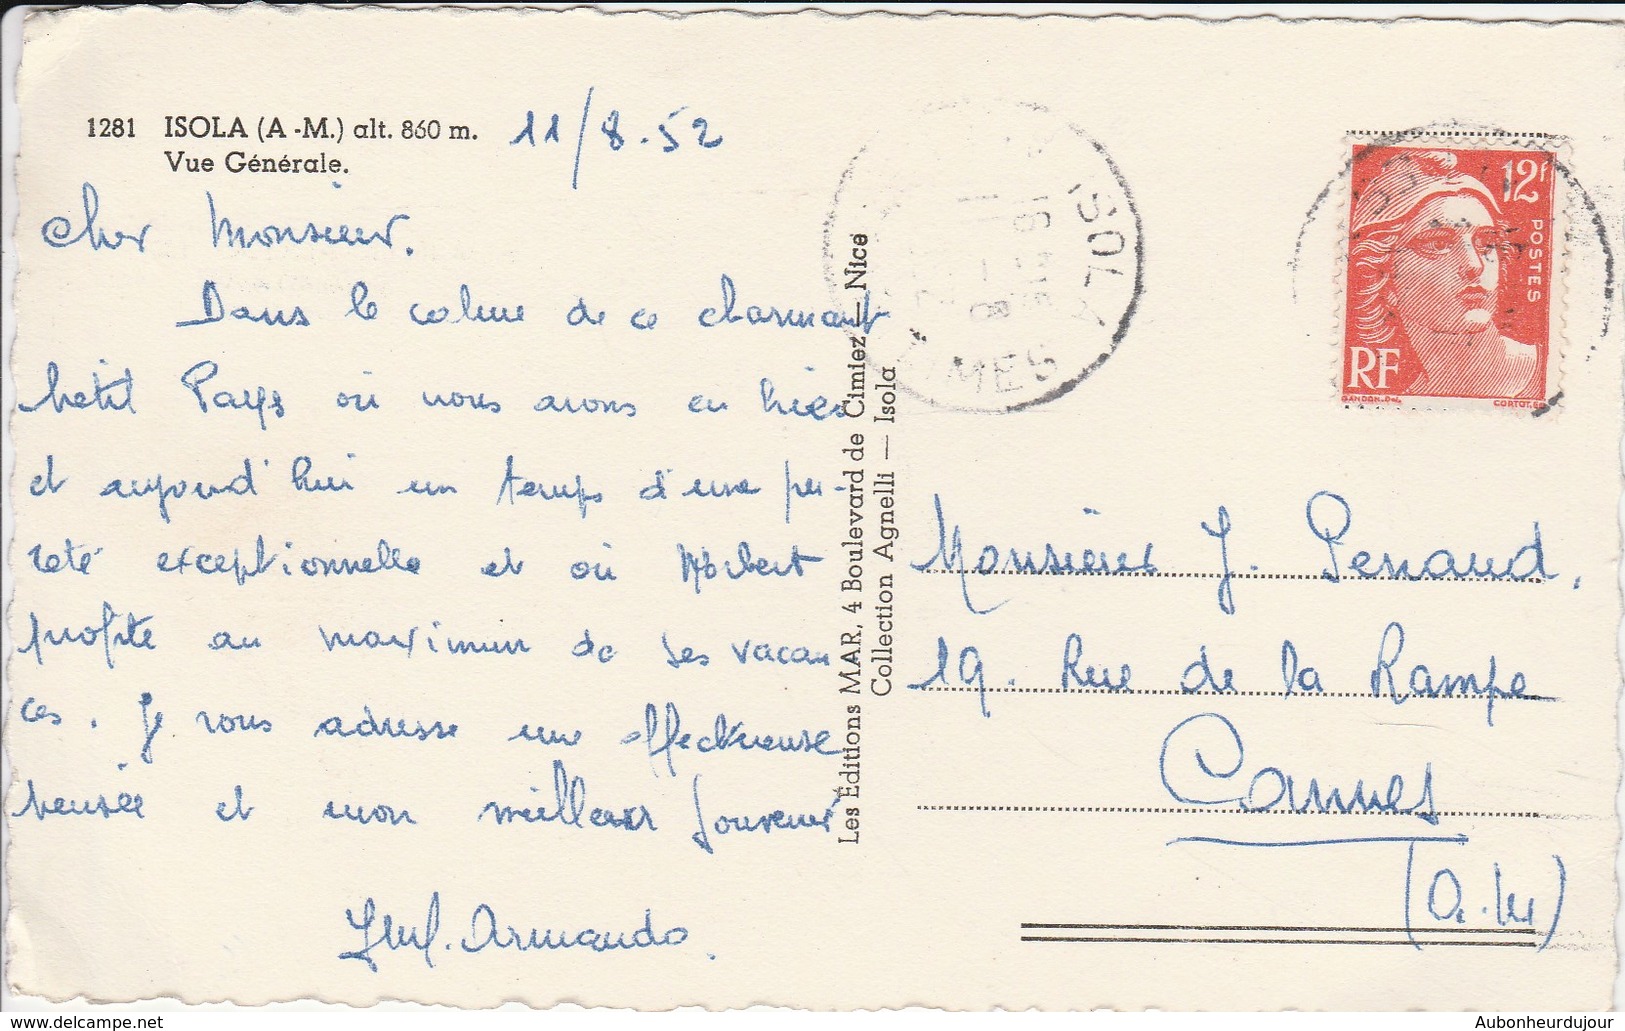 1281 ISOLA (A -M.) alt. 860 m.
Vue Générale.
11/8.52
Cher Monsieur.
Dans le calme de ce charmant
petit Pays où nous avons eu hier
et aujourd'hui un temps d'une pu-
reté exceptionnelle et où Norbert
profite au maximum de ses vacan
ces. Je vous adresse une affectueuse
pensée et mon meilleur souvenir
Armando.
Les Editions MAR, 4 Boulevard de Cimiez — Nice
Collection Agnelli — Isola
ISOLA
MES
12f
POSTES
RF
GANDON.Del.
CORTOT.
Monsieur J. Penaud,
19. Rue de la Rampe
Cannes
(A.M)
Aubonheurdujour